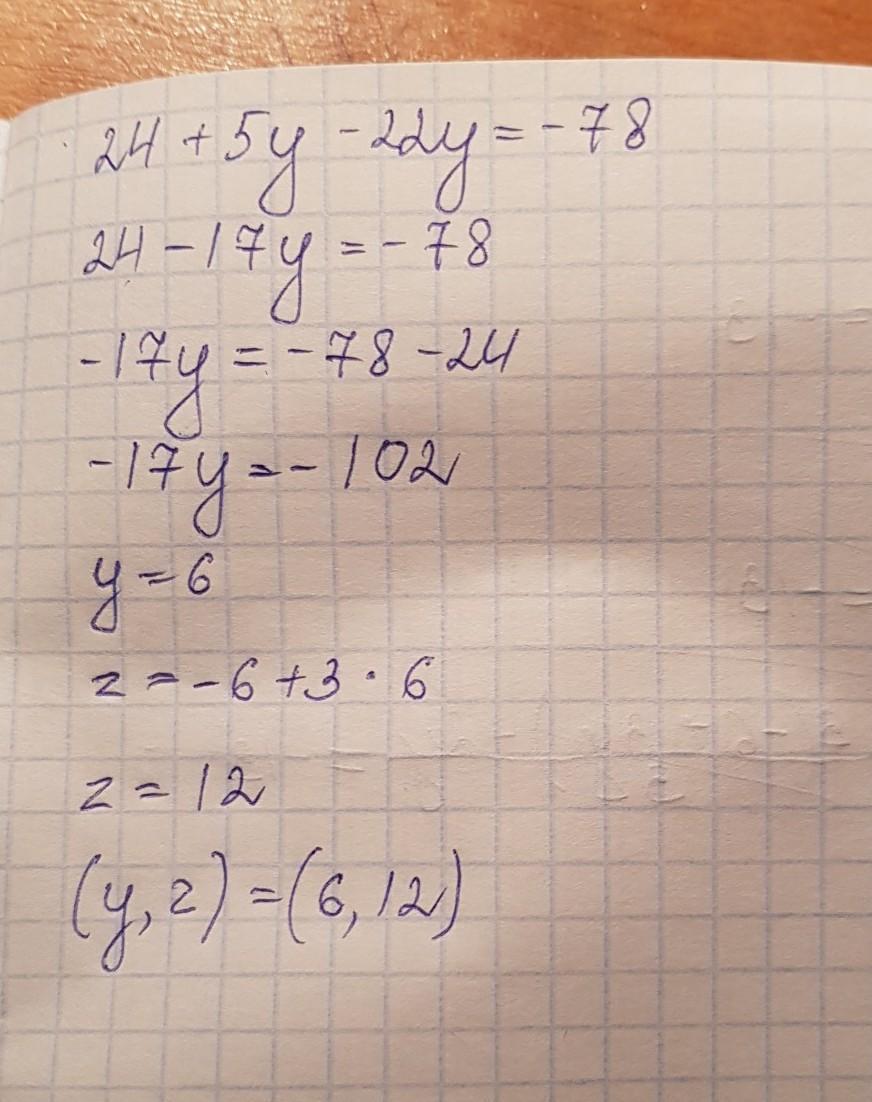 24 + 5y - 22y = - 78
24 - 17y = - 78
-17y = - 78 - 24
-17y = - 102
y = 6
z = - 6 + 3 · 6
z = 12
(y, z) = (6, 12)